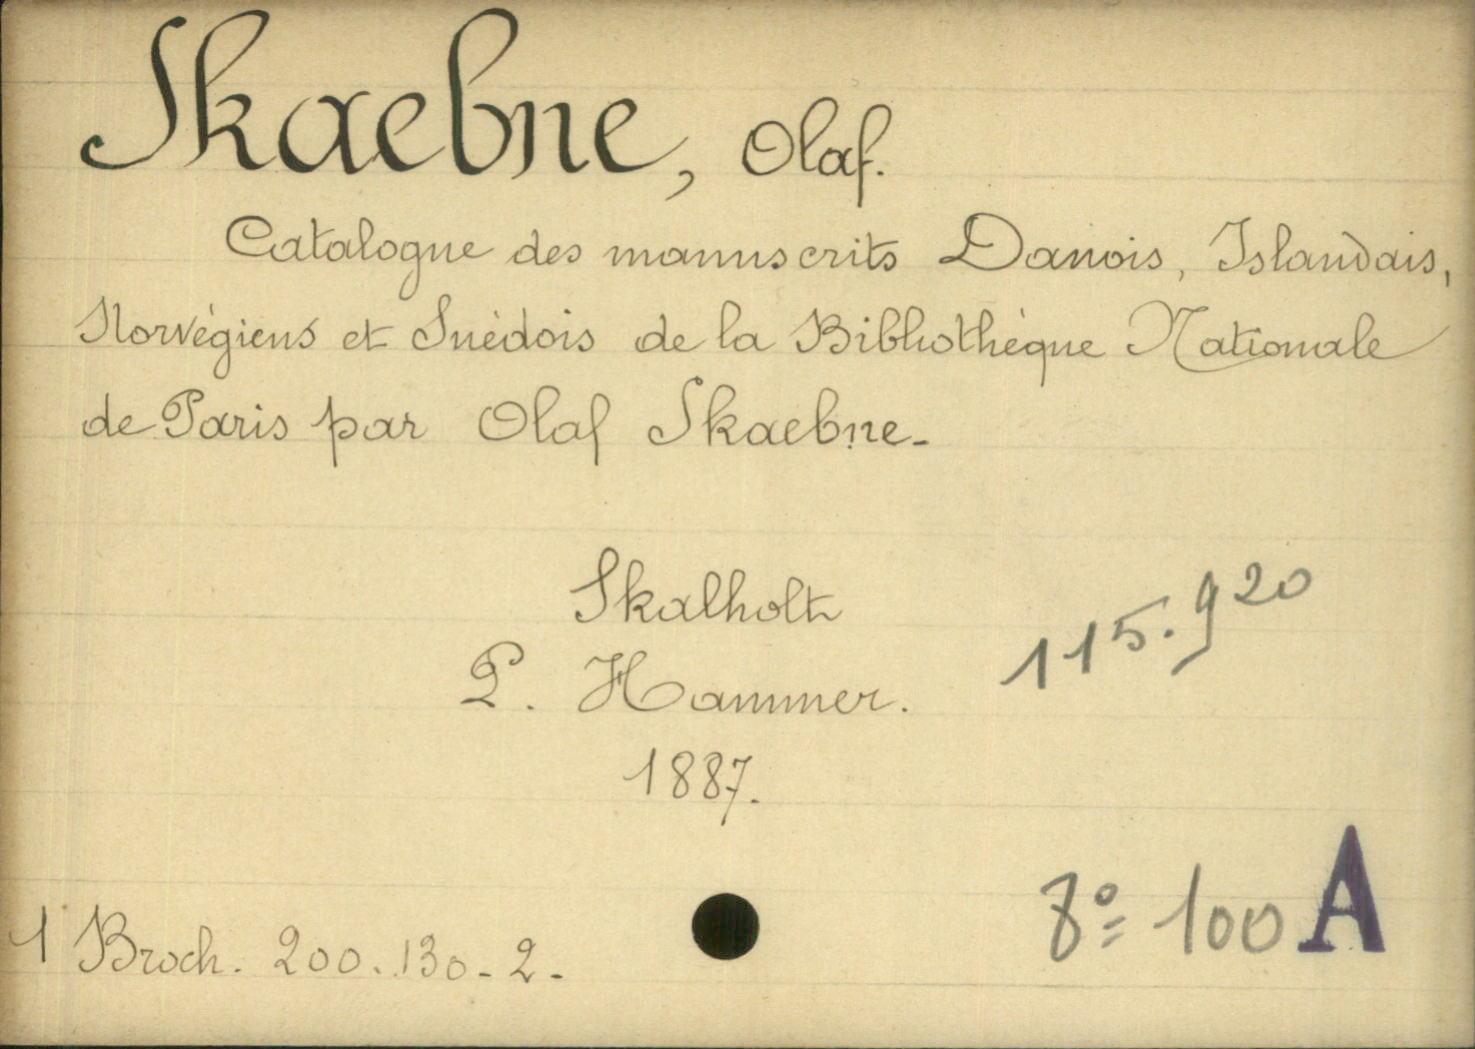 Skaebne, Olaf.
Catalogue des manuscrits Danois, Islandais,
Norvégiens et Suèdois de la Bibliothèque Nationale
de Paris par Olaf Skaebne.
Skalholt
P. Hammer.
1887.
115.920
8º 100 A
1 Broch. 200.130-2-